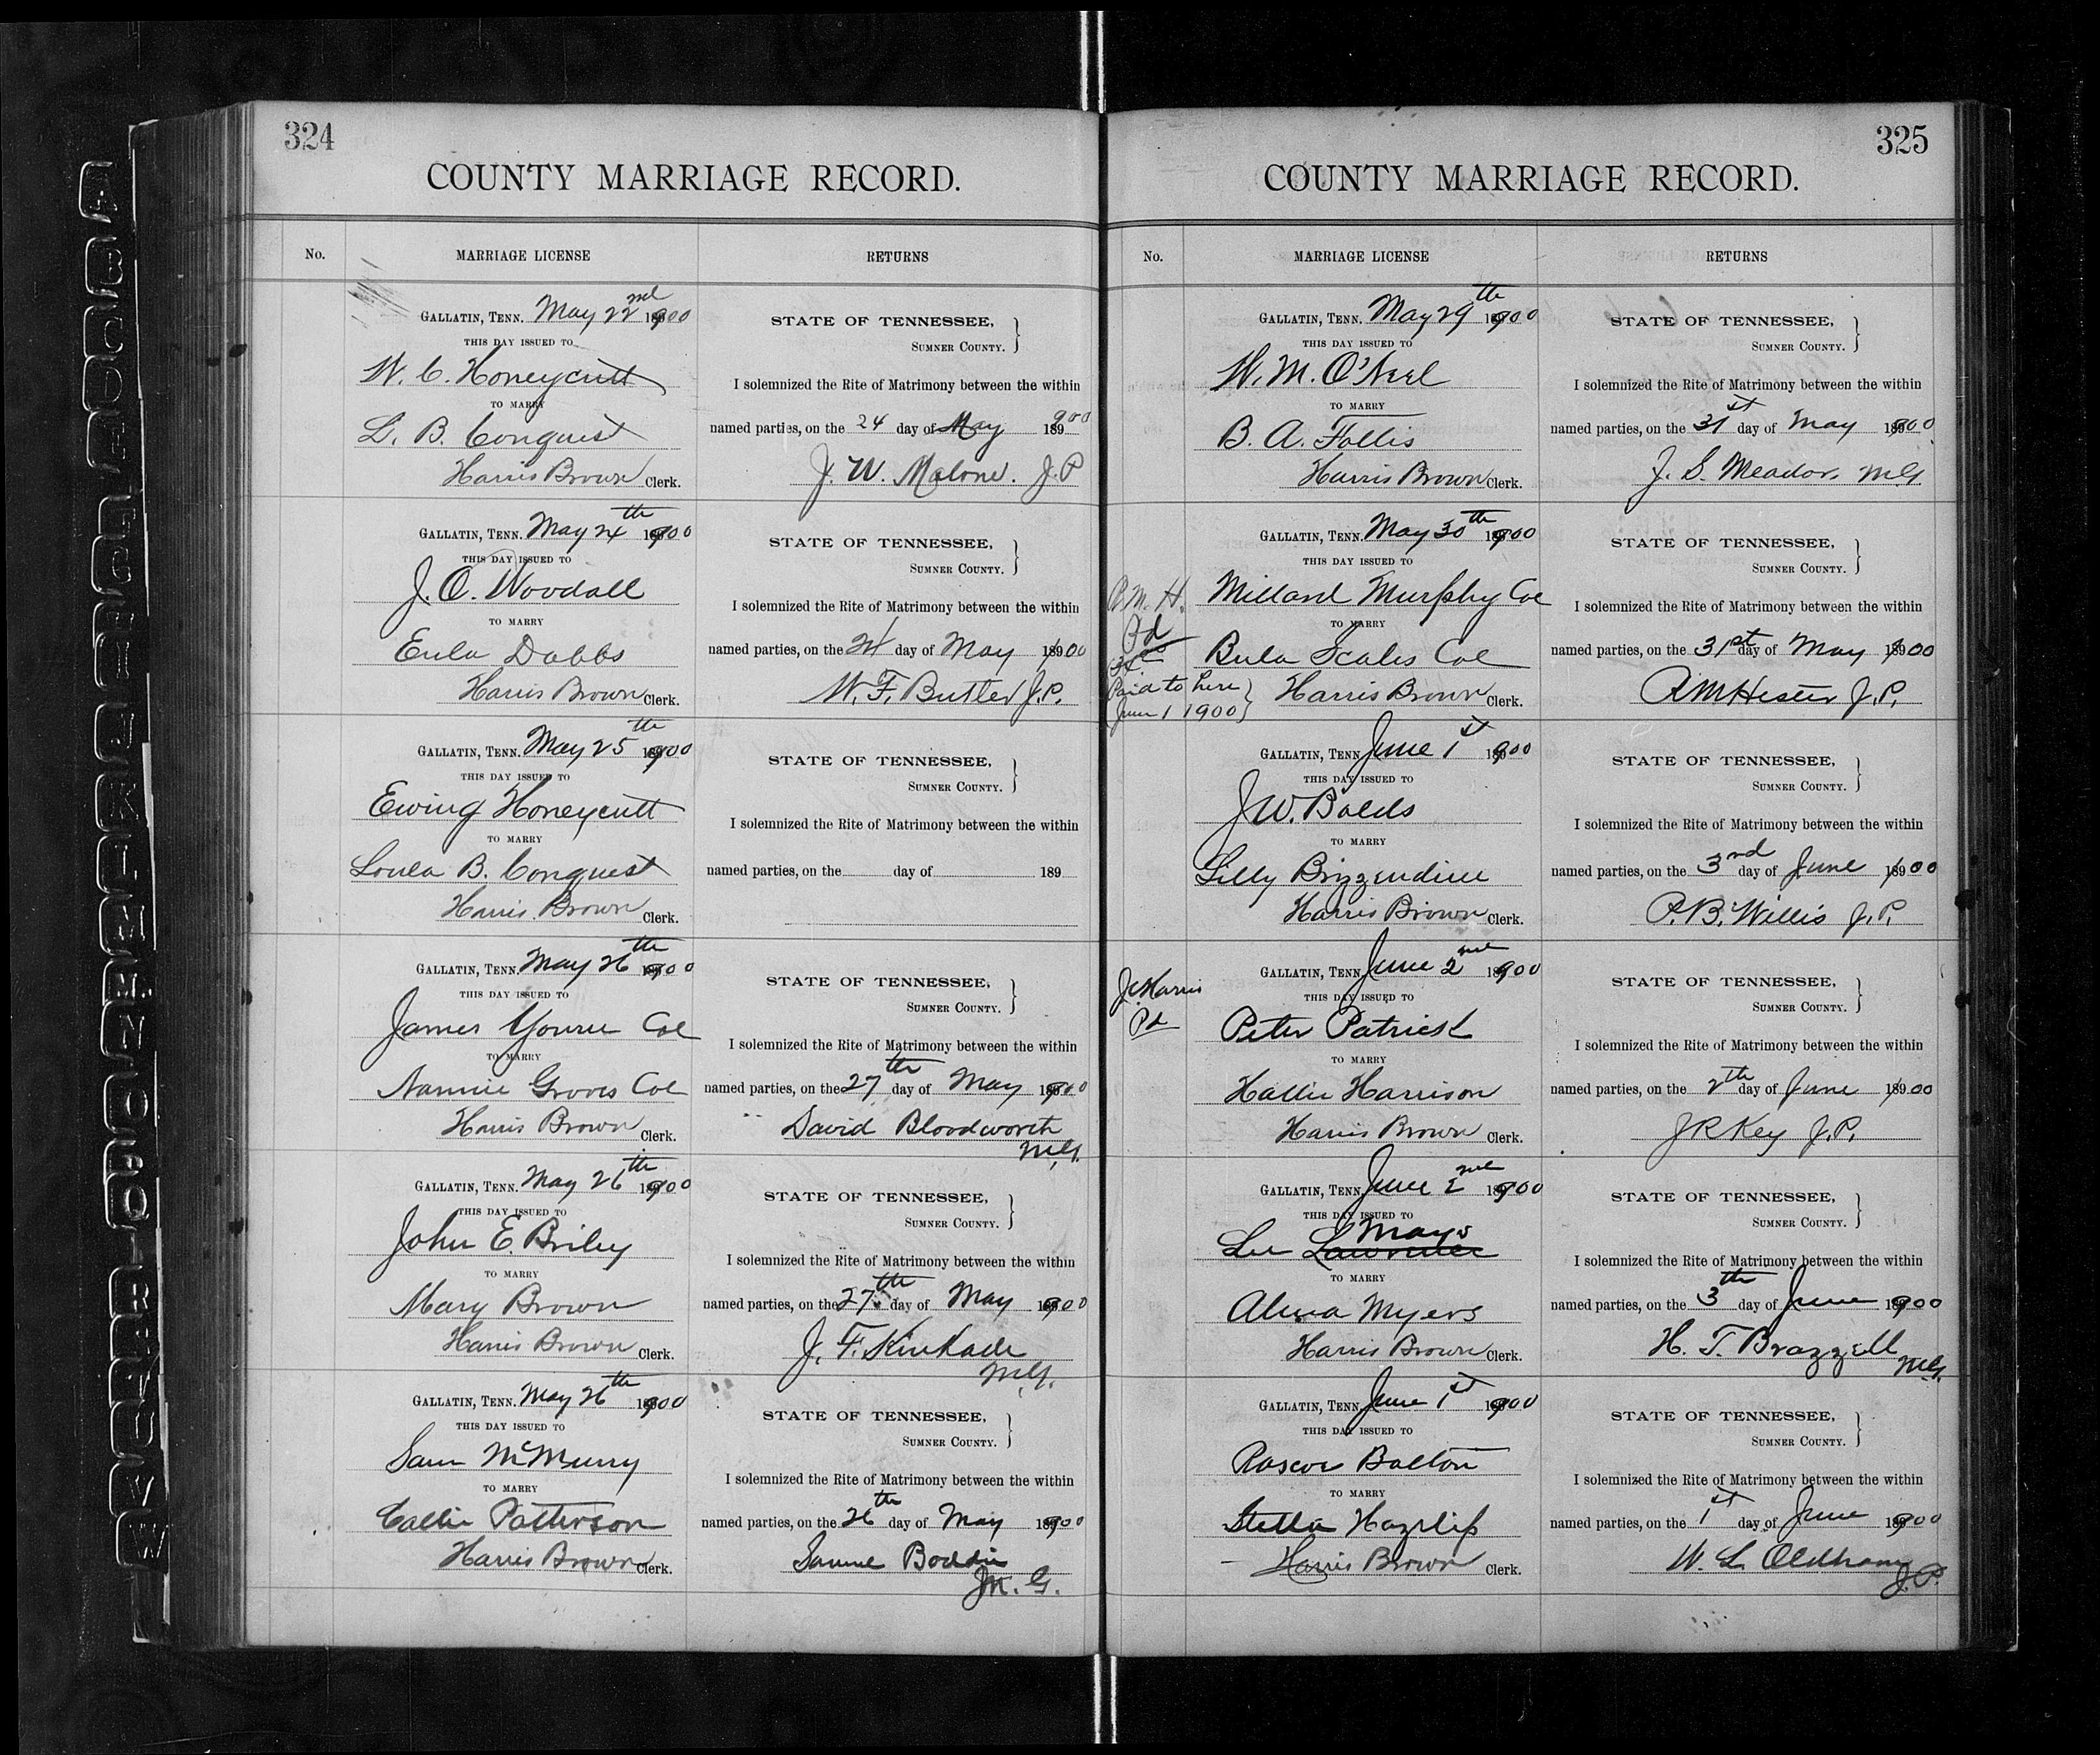 324
COUNTY MARRIAGE RECORD.
No. MARRIAGE LICENSE RETURNS
GALLATIN, TENN. May 22nd 1900
THIS DAY ISSUED TO
W. C. Honeycutt
TO MARRY
L. B. Conquest
Harris Brown Clerk.
STATE OF TENNESSEE,
SUMNER COUNTY.
I solemnized the Rite of Matrimony between the within
named parties, on the 24 day of May 189 900
J. W. Malone. J.P
GALLATIN, TENN. May 24th 1900
THIS DAY ISSUED TO
J. O. Woodall
TO MARRY
Eula Dobbs
Harris Brown Clerk.
STATE OF TENNESSEE,
SUMNER COUNTY.
I solemnized the Rite of Matrimony between the within
named parties, on the 24 day of May 1900
W. F. Butler J.P.
GALLATIN, TENN. May 25th 1900
THIS DAY ISSUED TO
Ewing Honeycutt
TO MARRY
Loula B. Conquest
Harris Brown Clerk.
STATE OF TENNESSEE,
SUMNER COUNTY.
I solemnized the Rite of Matrimony between the within
named parties, on the day of 189
GALLATIN, TENN. May 26th 1900
THIS DAY ISSUED TO
James Youree Col
TO MARRY
Nannie Groves Col
Harris Brown Clerk.
STATE OF TENNESSEE,
SUMNER COUNTY.
I solemnized the Rite of Matrimony between the within
named parties, on the 27th day of May 1900
David Bloodworth
M.G.
GALLATIN, TENN. May 26th 1900
THIS DAY ISSUED TO
John E. Briley
TO MARRY
Mary Brown
Harris Brown Clerk.
STATE OF TENNESSEE,
SUMNER COUNTY.
I solemnized the Rite of Matrimony between the within
named parties, on the 27th day of May 1900
J. F. Kinkade
M.G.
GALLATIN, TENN. May 26th 1900
THIS DAY ISSUED TO
Sam McMurry
TO MARRY
Callie Patterson
Harris Brown Clerk.
STATE OF TENNESSEE,
SUMNER COUNTY.
I solemnized the Rite of Matrimony between the within
named parties, on the 26th day of May 1900
Boddie
M. G.
325
COUNTY MARRIAGE RECORD.
No. MARRIAGE LICENSE RETURNS
GALLATIN, TENN. May 29th 1900
THIS DAY ISSUED TO
W. M. O'Neel
TO MARRY
B. A. Follis
Harris Brown Clerk.
STATE OF TENNESSEE,
SUMNER COUNTY.
I solemnized the Rite of Matrimony between the within
named parties, on the 31st day of May 1900
J. S. Meador. M.G.
GALLATIN, TENN. May 30th 1900
THIS DAY ISSUED TO
Millard Murphy Col
TO MARRY
Bula Scales Col
Harris Brown Clerk.
R.M. H.
Pd
Paid to here
June 1 1900
STATE OF TENNESSEE,
SUMNER COUNTY.
I solemnized the Rite of Matrimony between the within
named parties, on the 31st day of May 1900
R M Hester J.P.
GALLATIN, TENN. June 1st 1900
THIS DAY ISSUED TO
J. W. Bolds
TO MARRY
Lilly Brizzendine
Harris Brown Clerk.
STATE OF TENNESSEE,
SUMNER COUNTY.
I solemnized the Rite of Matrimony between the within
named parties, on the 3nd day of June 1900
P. B. Willis J.P.
GALLATIN, TENN. June 2nd 1900
THIS DAY ISSUED TO
Peter Patrick
TO MARRY
Hallie Harrison
Harris Brown Clerk.
Harris
Pd
STATE OF TENNESSEE,
SUMNER COUNTY.
I solemnized the Rite of Matrimony between the within
named parties, on the 2th day of June 1900
J R Key J.P.
GALLATIN, TENN. June 2nd 1900
THIS DAY ISSUED TO
Mays
Lee Lawrence
TO MARRY
Alma Myers
Harris Brown Clerk.
STATE OF TENNESSEE,
SUMNER COUNTY.
I solemnized the Rite of Matrimony between the within
named parties, on the 3th day of June 1900
H. T. Brazzell
M.G.
GALLATIN, TENN. June 1st 1900
THIS DAY ISSUED TO
Roscoe Bolton
TO MARRY
Stella Hazelip
Harris Brown Clerk.
STATE OF TENNESSEE,
SUMNER COUNTY.
I solemnized the Rite of Matrimony between the within
named parties, on the 1st day of June 1900
W. L. Oldham
J.P.